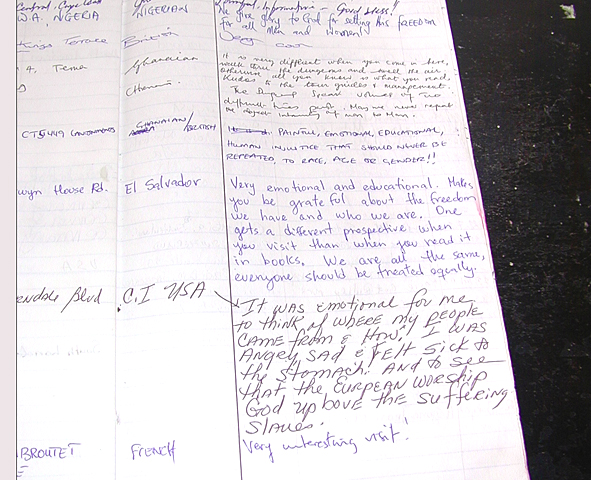 W.A. NGERIA NIGERIAN
We give glory to God for setting this FREEDOM
for all Men and Women!
Terrace British
4, Tema Ghanaian
It is very different when you come in here,
walk thru the dungeons and smell the air.
Otherwise all you know is what you read,
Kudos to the tour guides & management.
The Dungeon Speak volumes of two
different times past. May we never repeat
the inhumanity of man to Man.
GHANAIAN/BRITISH PAINFUL, EMOTIONAL, EDUCATIONAL,
HUMAN INJUSTICE THAT SHOULD NEVER BE
REPEATED, TO RACE, AGE OR GENDER!!
wyn House Rd. El Salvador Very emotional and educational. Makes
you be grateful about the freedom
we have and who we are. One
gets a different prospective when
you visit than when you read it
in books. We are all the same,
everyone should be treated equally.
Blvd C.I USA It was emotional for me
to think of where my people
came from & How! I was
Angry sad & felt sick to
the stomach! And to see
that the Eurpean worship
God up bove the suffering
Slaves.
BROUTET FRENCH Very interesting visit!